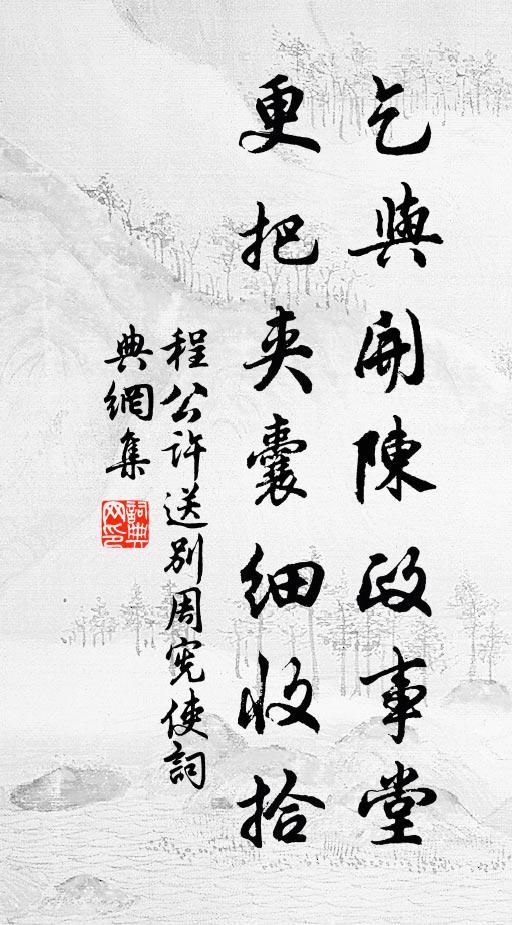 乞與開陳政事堂
更把夾囊細收拾
程公許送別周宪使詞
典網集
詞典
网印